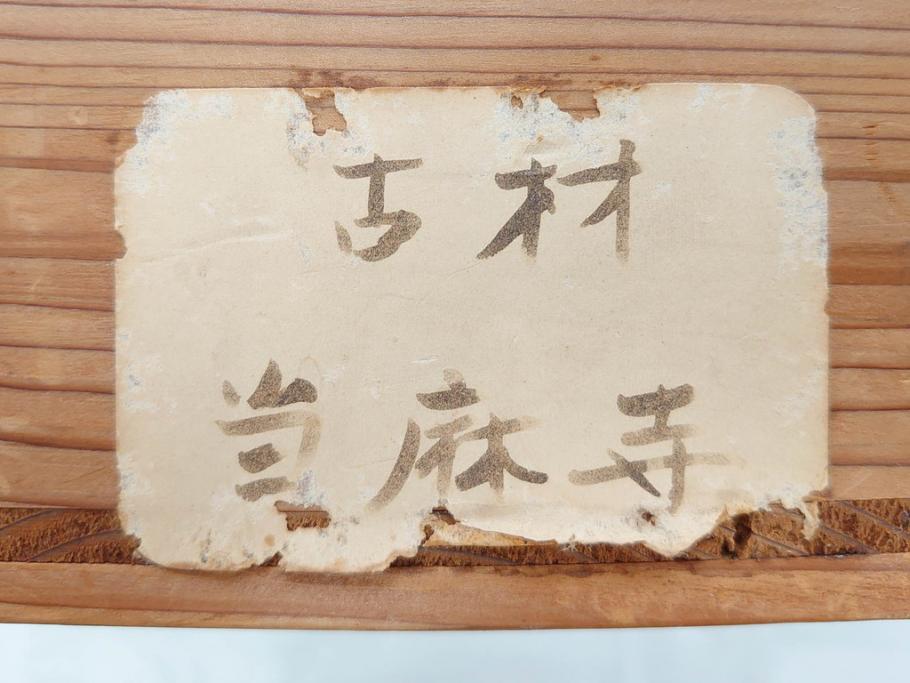 古材
当麻寺